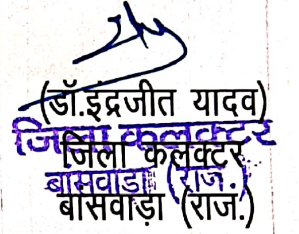 (डॉ.इंद्रजीत यादव)
जिला कलक्टर
जिला कलक्टर
बांसवाड़ा (राज.)
बांसवाड़ा (राज.)